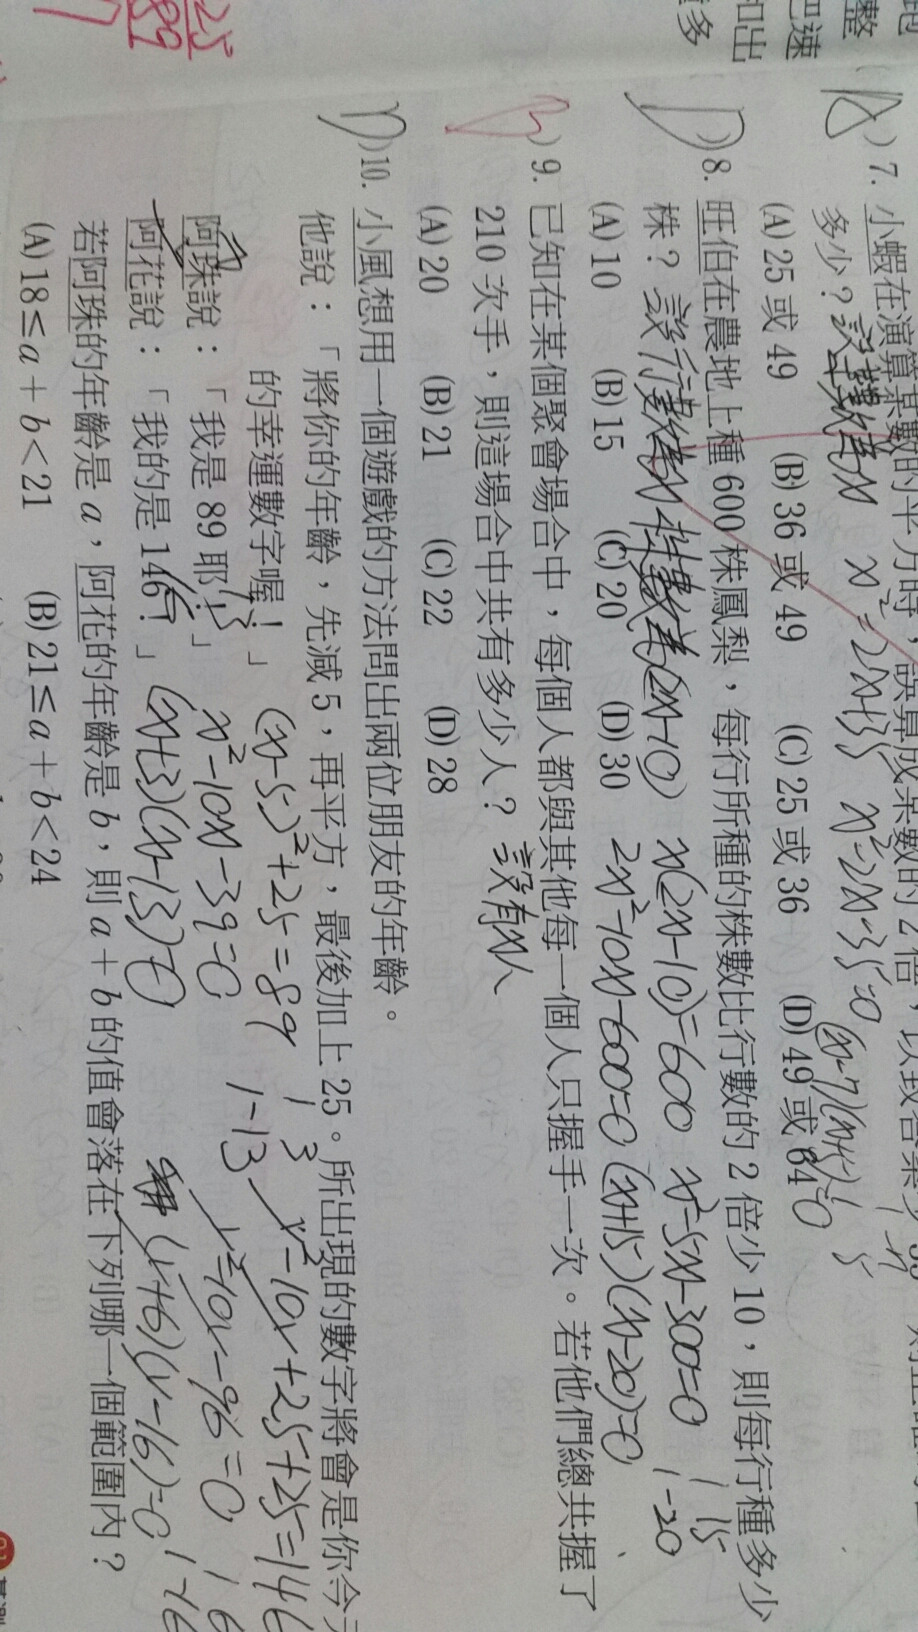 7. 小蝦在演算某數的平方時，誤算成某數的2倍，以致答案少35
多少？設某數為x x²=2x+35 x²-2x-35=0 (x-7)(x+5)=0
(A) 25 或 49 (B) 36 或 49 (C) 25 或 36 (D) 49 或 64
8. 旺伯在農地上種 600 株鳳梨，每行所種的株數比行數的 2 倍少 10，則每行種多少
株？設行數為x 株數為(2x-10) x(2x-10)=600 x²-5x-300=0
(A) 10 (B) 15 (C) 20 (D) 30 2x²-10x-600=0 (x+15)(x-20)=0
1 15
1 -20
9. 已知在某個聚會場合中，每個人都與其他每一個人只握手一次。若他們總共握了
210 次手，則這場合中共有多少人？設有x人
(A) 20 (B) 21 (C) 22 (D) 28
10. 小風想用一個遊戲的方法問出兩位朋友的年齡。
他說：「將你的年齡，先減 5，再平方，最後加上 25。所出現的數字將會是你今天
的幸運數字喔！」 (x-5)²+25=89 y²-10y+25+25=146
阿珠說：「我是 89 耶！」 x²-10x-39=0 1 3 1-13 y²-10y-96=0
阿花說：「我的是 146！」 (x+3)(x-13)=0 (y+6)(y-16)=0 1 6 1-16
若阿珠的年齡是 a，阿花的年齡是 b，則 a + b 的值會落在下列哪一個範圍內？
(A) 18 ≤ a + b < 21 (B) 21 ≤ a + b < 24